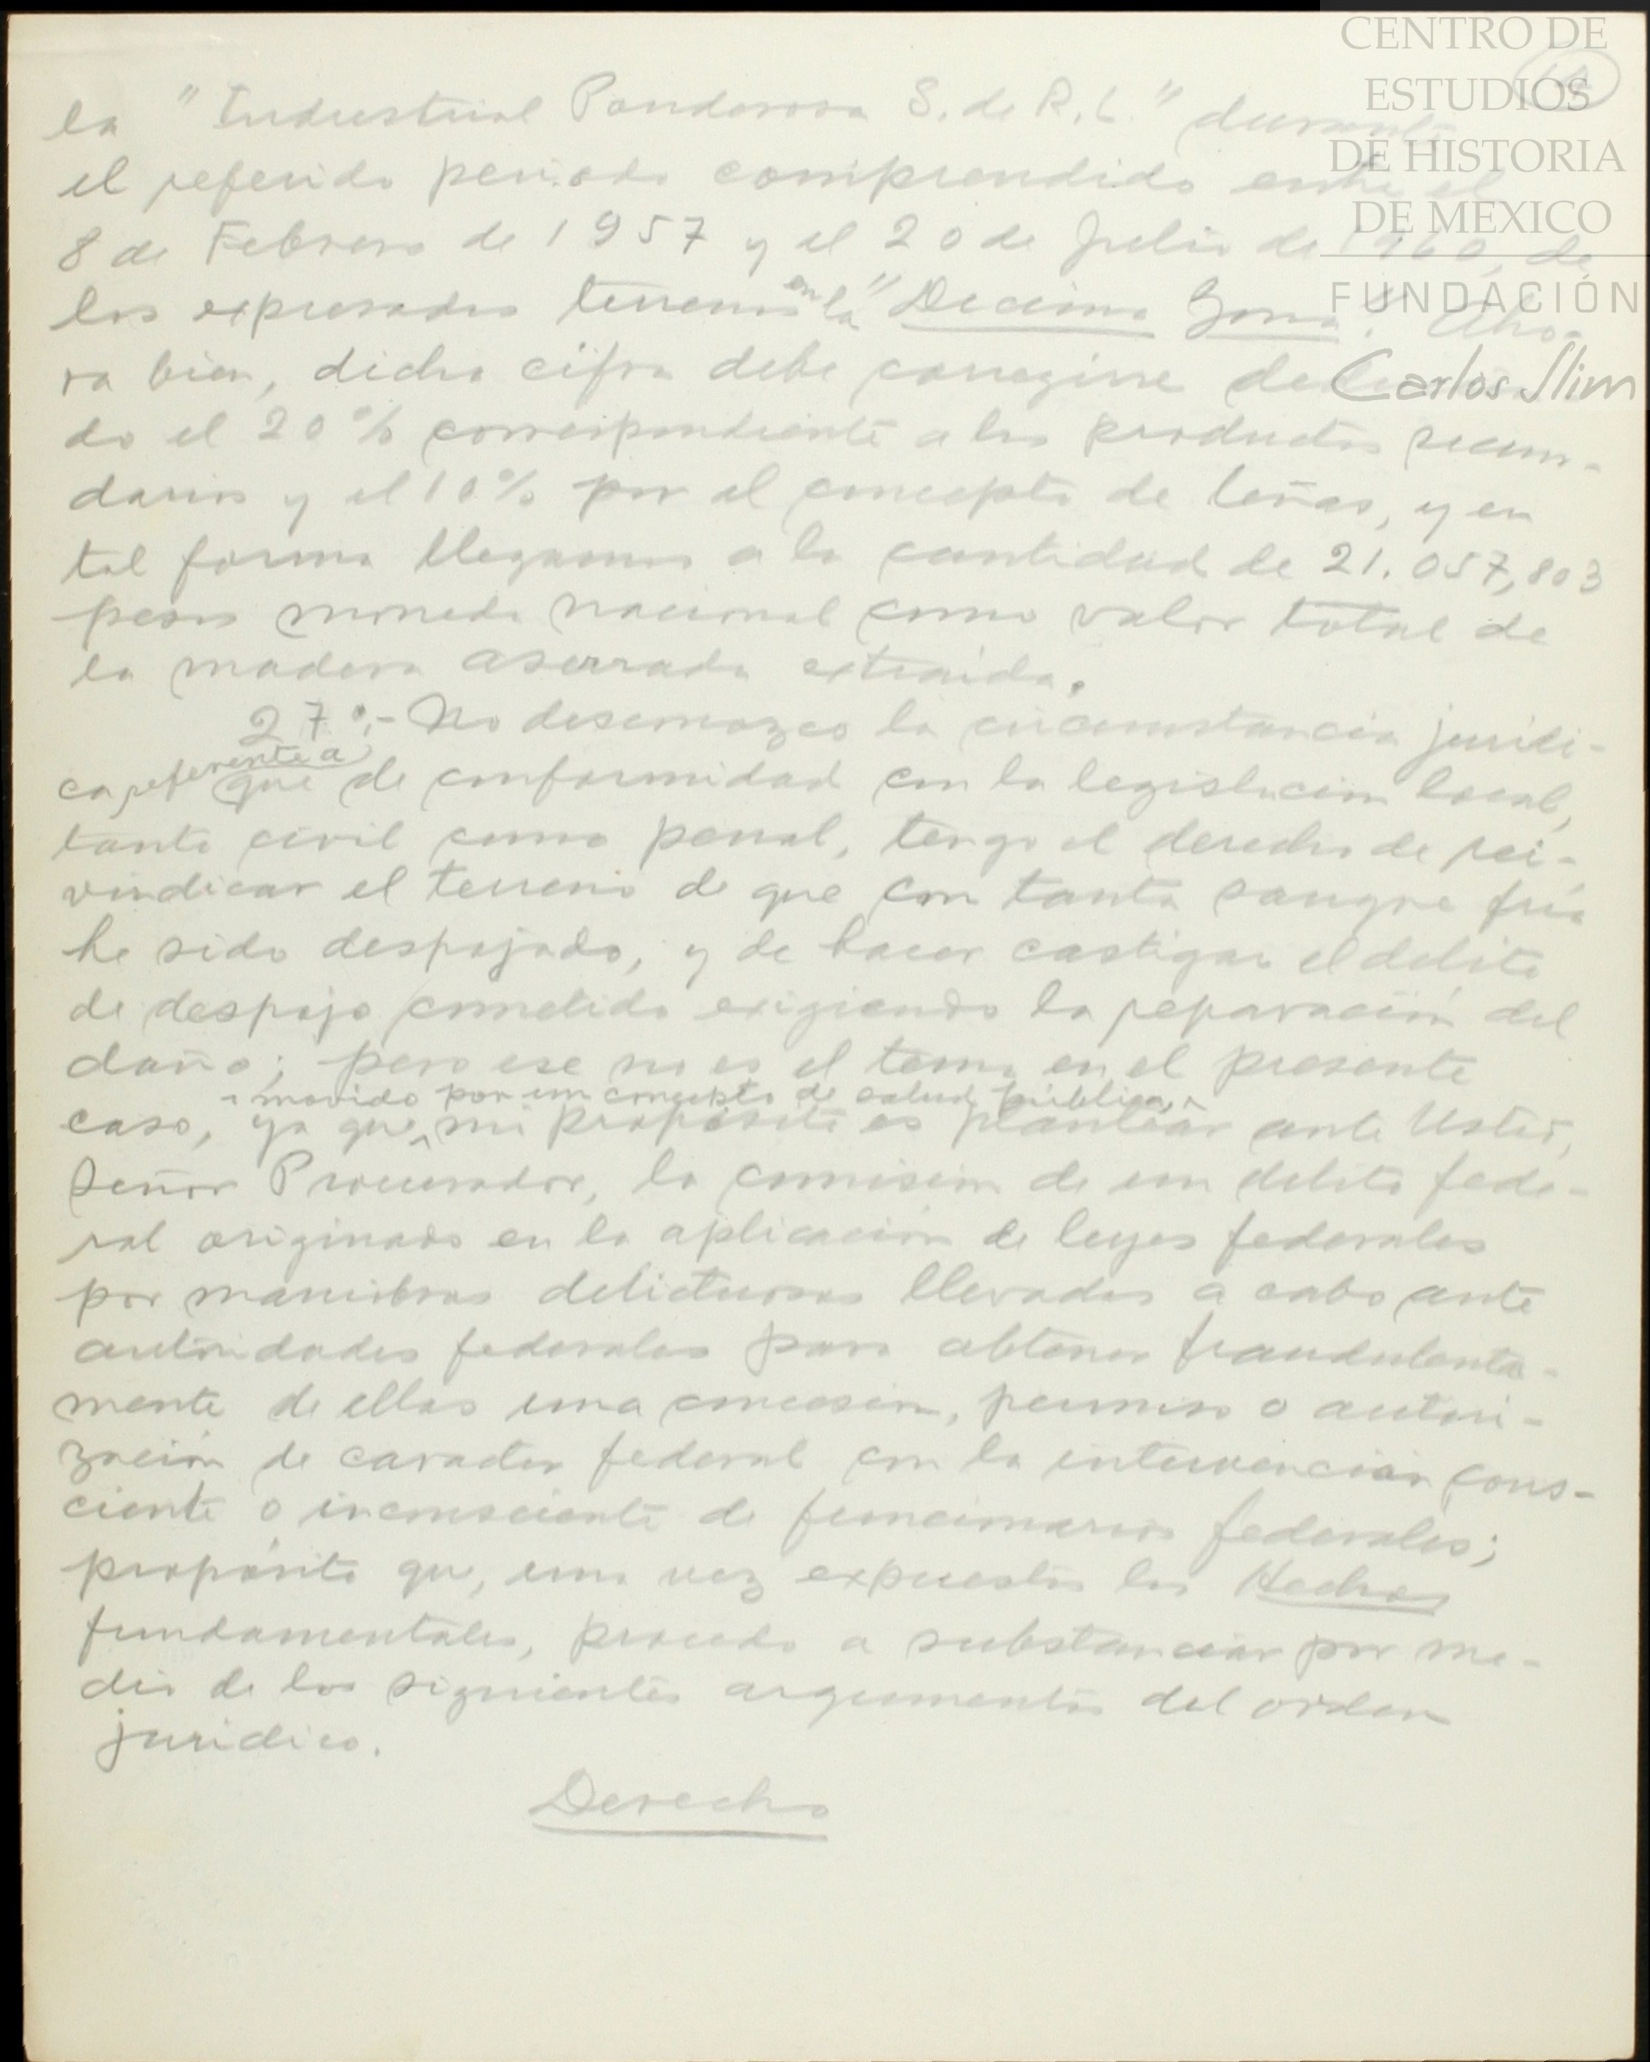 CENTRO DE
ESTUDIOS
DE HISTORIA
DE MEXICO
FUNDACIÓN
Carlos Slim
la "Industrial Ponderosa S. de R. L." durante
el referido periodo comprendido entre el
8 de Febrero de 1957 y el 20 de Julio de 1960, de
los expresados terrenos en la "Decima Zona". Aho-
ra bien, dicha cifra debe corregirse
do el 20% correspondiente a los productos secun-
darios y el 10% por el concepto de leñas, y en
tal forma llegamos a la cantidad de 21.057,803
pesos moneda nacional como valor total de
la madera aserrada extraida.
27°.- No desconozco la circunstancia juridi-
ca referente a que de conformidad con la legislacion local,
tanto civil como penal, tengo el derecho de rei-
vindicar el terreno de que con tanta sangre fría
he sido despojado, y de hacer castigar el delito
de despojo cometido exigiendo la reparación del
daño; pero ese no es el tema en el presente
movido por un concepto de salud pública,
caso, ya que mi proposito es plantear ante Usted,
Señor Procurador, la comision de un delito fede-
ral originado en la aplicación de leyes federales
por maniobras delictuosas llevadas a cabo ante
autoridades federales para obtener fraudulenta-
mente de ellas una concesion, permiso o autori-
zación de caracter federal con la intervención cons-
ciente o inconsciente de funcionarios federales;
propósito que, una vez expuestos los Hechos
fundamentales, procedo a substanciar por me-
dio de los siguientes argumentos del orden
juridico.
Derecho